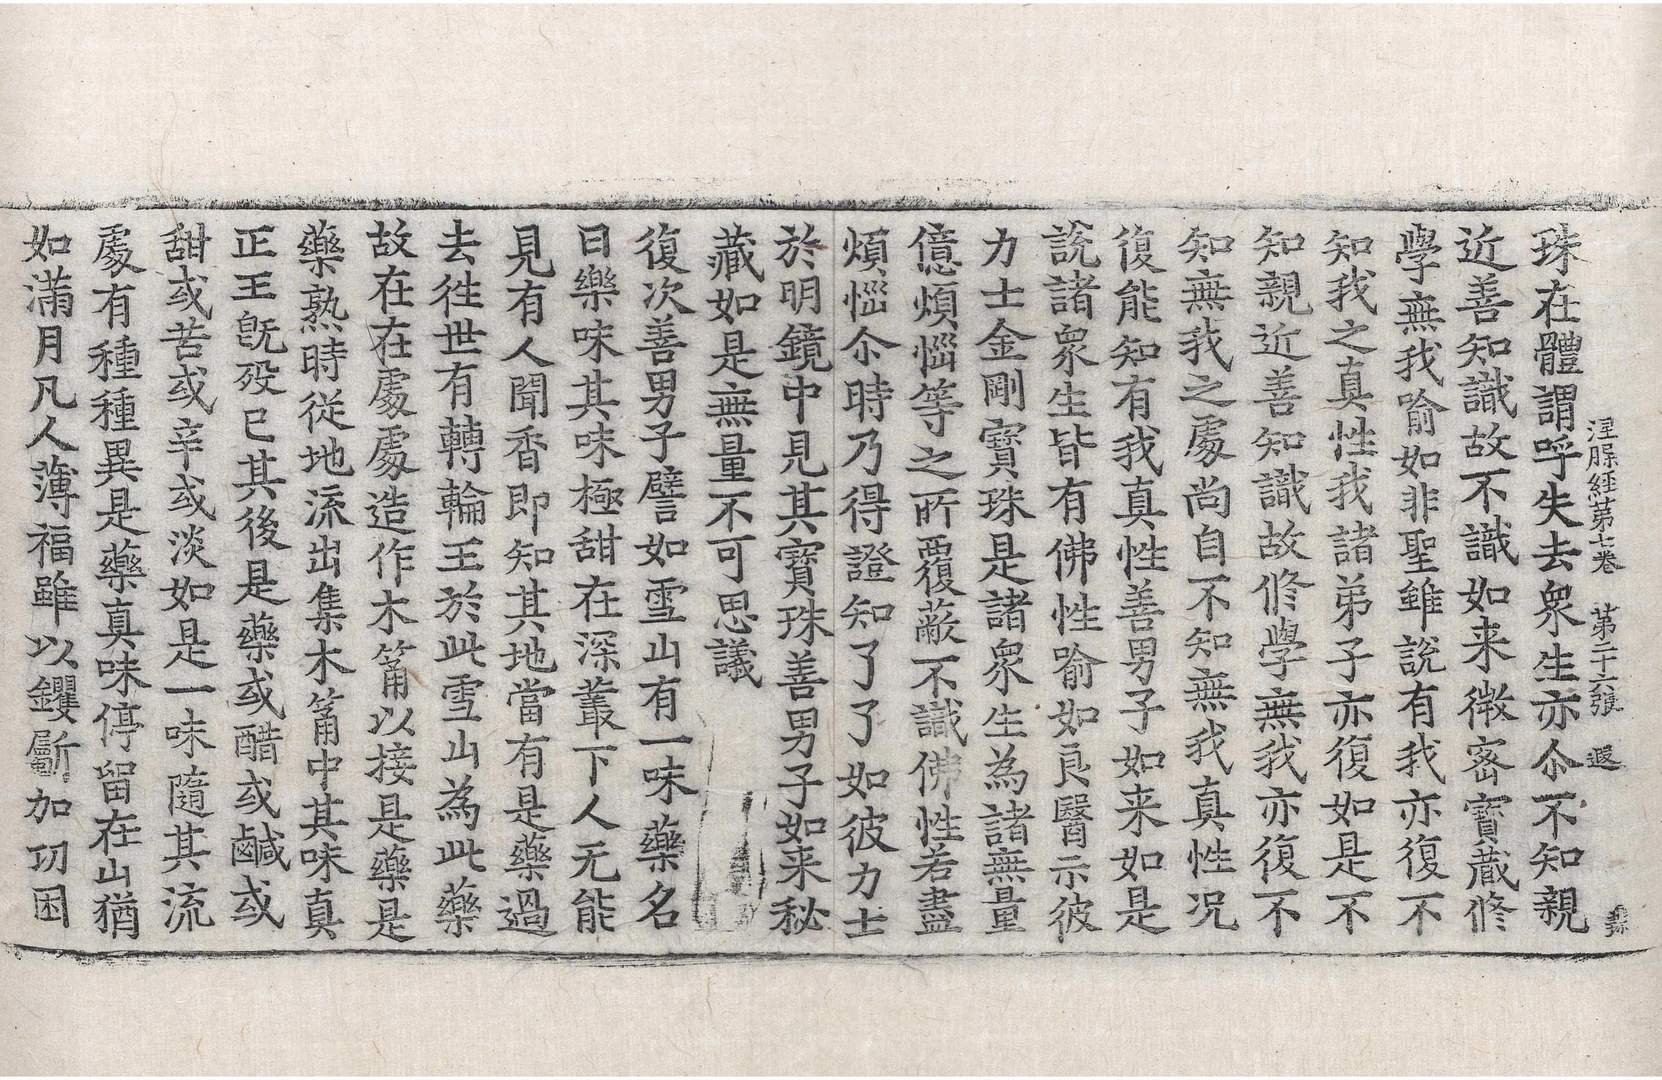 涅脲經第七卷 第二十六張 遐
珠在體謂呼失去衆生亦尒不知親
近善知識故不識如来微密寶蔵修
學無我喻如非聖雖說有我亦復不
知我之真性我諸弟子亦復如是不
知親近善知識故修學無我亦復不
知無我之處尚自不知無我真性况
復能知有我真性善男子如来如是
說諸衆生皆有佛性喻如良醫示彼
力士金剛寶珠是諸衆生為諸無量
億煩惱等之所覆蔽不識佛性若盡
煩惱尒時乃得證知了了如彼力士
於明鏡中見其寶珠善男子如来秘
藏如是無量不可思議
復次善男子譬如雪山有一味藥名
曰樂味其味極甜在深叢下人无能
見有人聞香即知其地當有是藥過
去徃世有轉輪王於此雪山為此藥
故在在處處造作木筩以接是藥是
藥熟時從地流出集木筩中其味真
正王旣歿已其後是藥或醋或鹹或
甜或苦或辛或淡如是一味隨其流
處有種種異是藥真味停留在山猶
如滿月凡人薄福雖以钁斸加功困